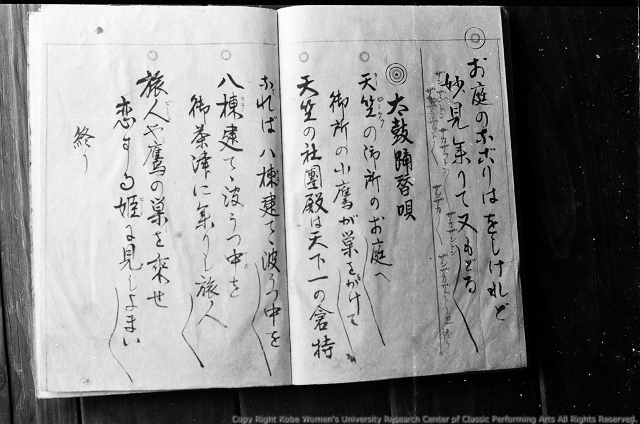 お庭のホボリはをしけれど
妙見参りて又もどる
太鼓踊替唄
天竺の御所のお庭へ
御所の小鷹が巣をがけて
天竺の社團殿は天下一の倉持
なれば八棟建てゝ波うつ中を
八棟建てゝ波うつ中を
御茶津に参りし旅人
旅人や鷹の巣を乗せ
恋する姫に見しよまい
終り
Copy Right Kobe Women's University Research Center of Classic Performing Arts All Rights Reserved.